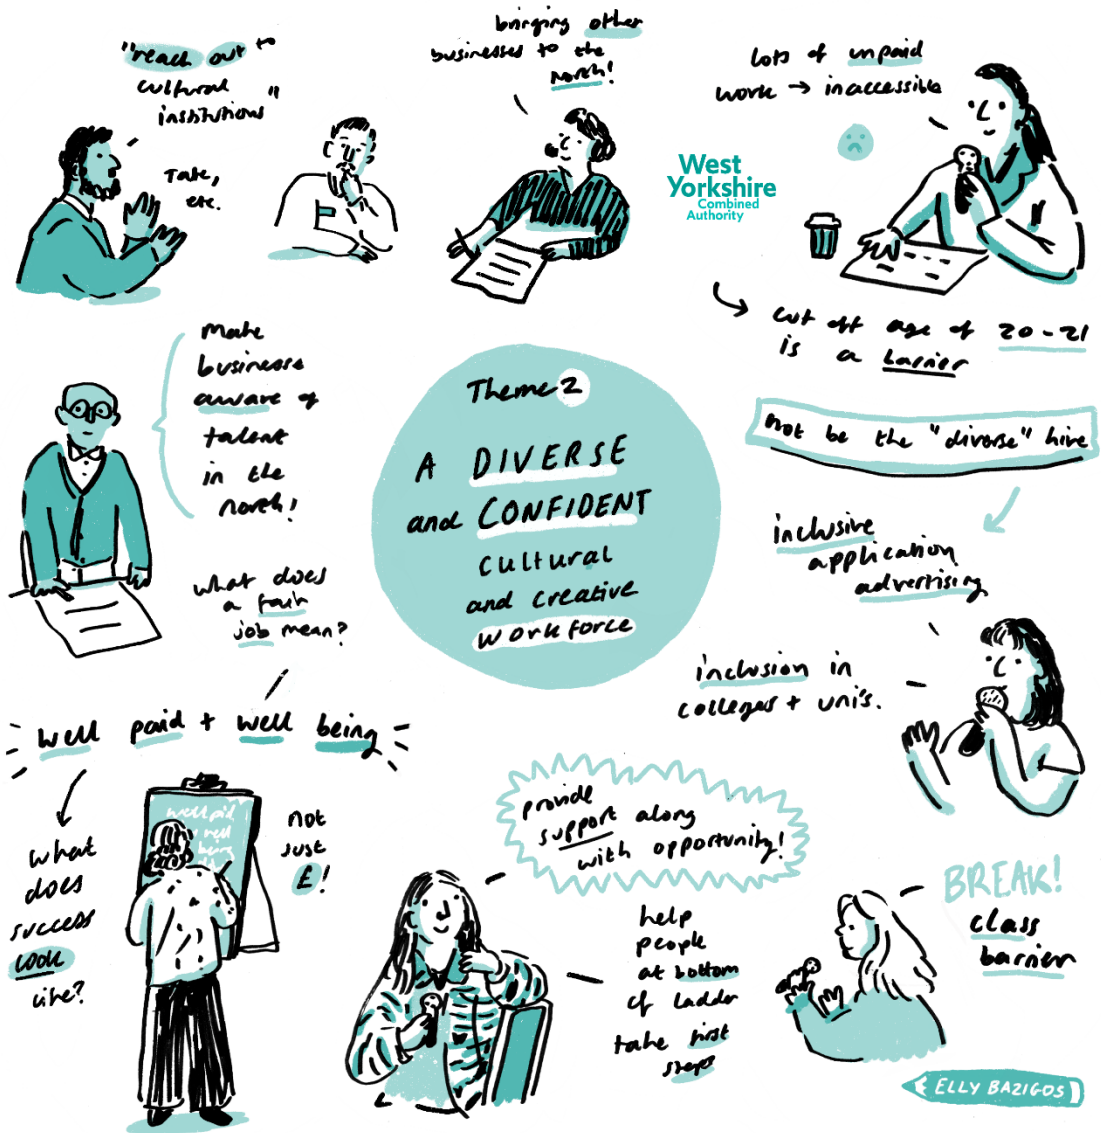 "reach out" to
cultural
institutions"
Tate,
etc.
bringing other
businesses to the
north!
lots of unpaid
work → inaccessible
West
Yorkshire
Combined
Authority
cut off age of 20-21
is a barrier
not be the "diverse" hire
inclusive
application
advertising
inclusion in
colleges + uni's.
Make
businesses
aware of
talent
in the
north!
what does
a fair
job mean?
Theme 2
A DIVERSE
and CONFIDENT
cultural
and creative
workforce
well paid + well being
what
does
success
look
like?
well paid
well
being
not
just
£!
provide
support along
with opportunity!
help
people
at bottom
of ladder
take first
steps
BREAK!
class
barrier
ELLY BAZIGOS